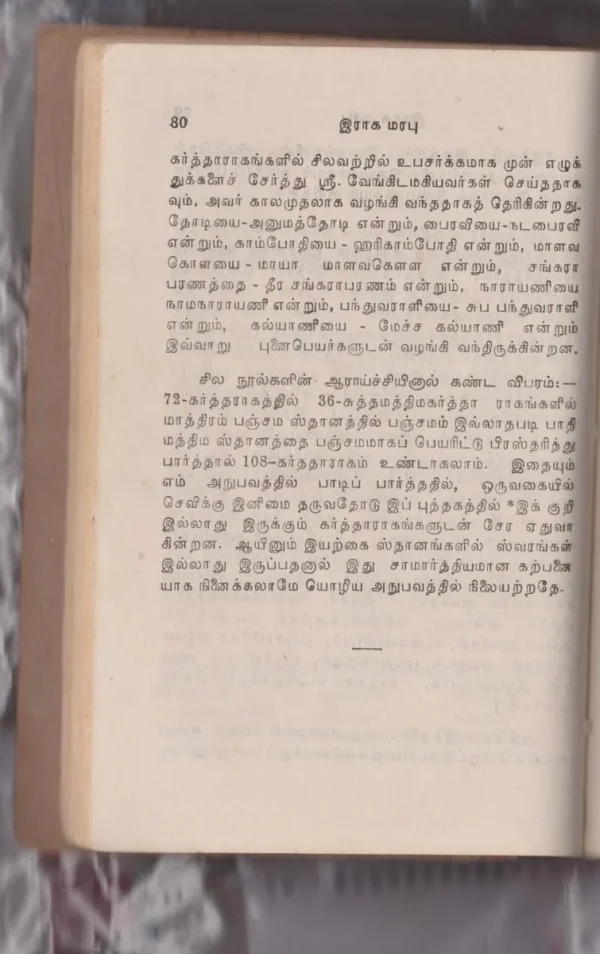 80 இராக மரபு
கர்த்தாராகங்களில் சிலவற்றில் உபசர்க்கமாக முன் எழுத்
துக்களைச் சேர்த்து ஸ்ரீ. வேங்கிடமகியவர்கள் செய்ததாக
வும், அவர் காலமுதலாக வழங்கி வந்ததாகத் தெரிகின்றது.
தோடியை-அனுமத்தோடி என்றும், பைரவியை-நடபைரவி
என்றும், காம்போதியை - ஹரிகாம்போதி என்றும், மாளவ
கௌளயை - மாயா மாளவகௌள என்றும், சங்கரா
பரணத்தை - தீர சங்கராபரணம் என்றும், நாராயணியை
நாமநாராயணி என்றும், பந்துவராளியை- சுப பந்துவராளி
என்றும், கல்யாணியை - மேச்ச கல்யாணி என்றும்
இவ்வாறு புனைபெயர்களுடன் வழங்கி வந்திருக்கின்றன.
சில நூல்களின் ஆராய்ச்சியினால் கண்ட விபரம்:—
72-கர்த்தராகத்தில் 36-சுத்தமத்திமகர்த்தா ராகங்களில்
மாத்திரம் பஞ்சம ஸ்தானத்தில் பஞ்சமம் இல்லாதபடி பாதி
மத்திம ஸ்தானத்தை பஞ்சமமாகப் பெயரிட்டு பிரஸ்தரித்து
பார்த்தால் 108-கர்த்தாராகம் உண்டாகலாம். இதையும்
எம் அநுபவத்தில் பாடிப் பார்த்ததில், ஒருவகையில்
செவிக்கு இனிமை தருவதோடு இப் புத்தகத்தில் *இக் குறி
இல்லாது இருக்கும் கர்த்தாராகங்களுடன் சேர ஏதுவா
கின்றன. ஆயினும் இயற்கை ஸ்தானங்களில் ஸ்வரங்கள்
இல்லாது இருப்பதனால் இது சாமார்த்தியமான கற்பனை
யாக நினைக்கலாமே யொழிய அநுபவத்தில் நிலையற்றதே.